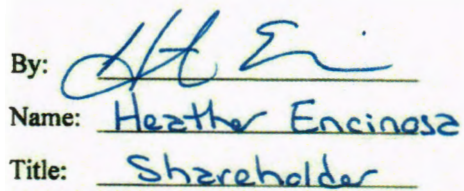 By:
Name: Heather Encinosa
Title: Shareholder